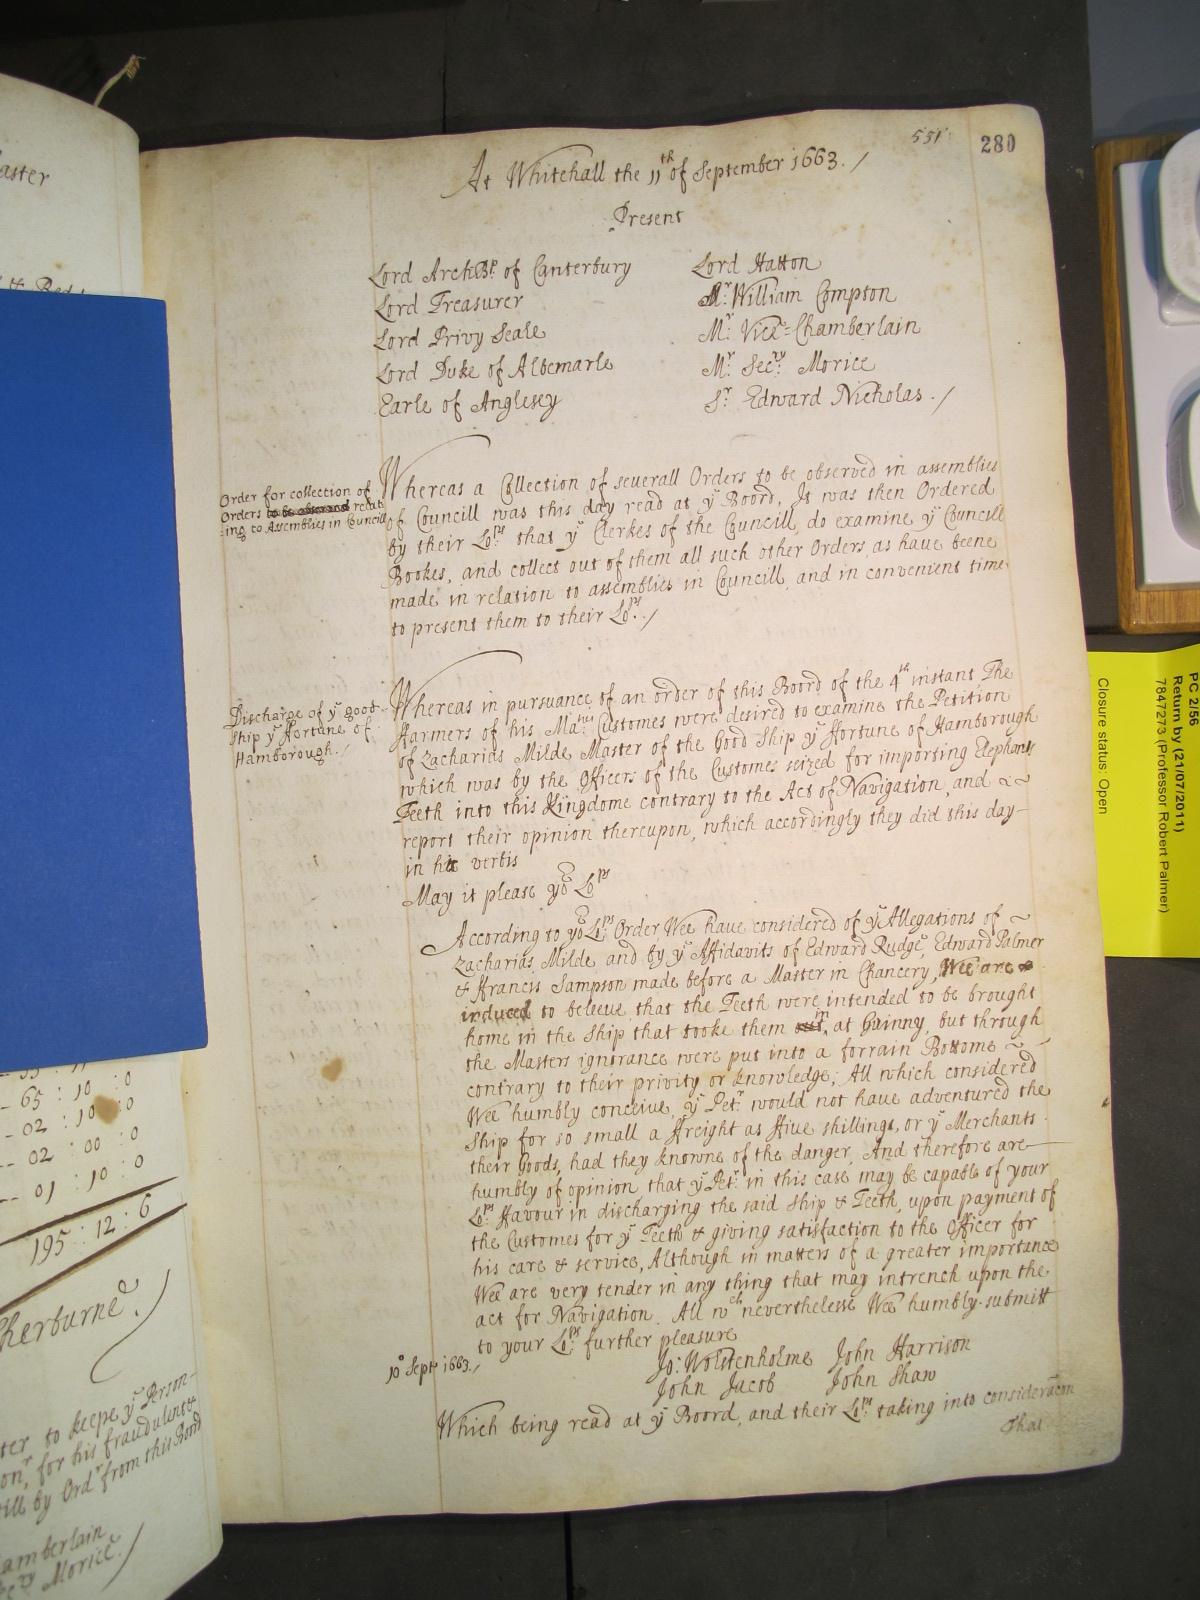 551
280
At Whitehall the 11th of September 1663. /
Present
Lord ArchBp. of Canterbury
Lord Treasurer
Lord Privy Seale
Lord Duke of Albemarle
Earle of Anglesey
Lord Hatton
Mr. William Compton
Mr. Vice-Chamberlain
Mr. Secry. Morice
Sr. Edward Nicholas. /
Order for collection of
Orders to be observed relat
=ing to Assemblies in Councill
Whereas a Collection of severall Orders to be observed in assemblies
of Councill was this day read at ye Board, It was then Ordered
by their Lops. that ye Clerkes of the Councill, do examine ye Councill
Bookes, and collect out of them all such other Orders, as have beene
made in relation to assemblies in Councill, and in convenient time
to present them to their Lops. /
Discharge of ye good
ship ye ffortune of
Hamborough. /
Whereas in pursuance of an order of this Board of the 4th instant The
ffarmers of his Maties Customes were desired to examine the Petition
of Zacharias Milde Master of the Good Ship ye ffortune of Hamborough
which was by the Officers of the Customes seized for importing Elephants
Teeth into this Kingdome contrary to the Act of Navigation, and
report their opinion thereupon, which accordingly they did this day
in hæc verbis
May it please yor Lops
According to yor Lops. Order Wee have considered of ye Allegations of
Zacharias Milde and by ye Affidavits of Edward Rudge, Edward Palmer
& ffrancis Sampson made before a Master in Chancery, Wee are
induced to beleeve that the Teeth were intended to be brought
home in the Ship that tooke them out, in at Guinny, but through
the Masters ignorance were put into a forrain Bottome
contrary to their privity or knowledge; All which considered
Wee humbly conceive, ye Petr. would not have adventured the
Ship for so small a ffreight as ffive shillings, or ye Merchants
their Goods, had they knowne of the danger, And therefore are
humbly of opinion that ye Petr. in this case may be capable of your
Lops. ffavour in discharging the said Ship & Teeth, upon payment of
the Customes for ye Teeth & giving satisfaction to the Officer for
his care & service, Although in matters of a greater importance
Wee are very tender in any thing that may intrench upon the
act for Navigation. All wch nevertheless Wee humbly submitt
to your Lops. further pleasure
10o Sept. 1663. /
Jo: Wolstenholme John Harrison
John Jacob John Shaw
Which being read at ye Board, and their Lops. taking into consideracon
That
65 : 10 : 0
02 : 10 : 0
02 : 00 : 0
01 : 10 : 0
195 : 12 : 6
to keepe ye Person
for his fraudulent
by Ordr from this Board
Morice. /
PC 2/56
Return by (21/07/2011)
7847273 (Professor Robert Palmer)
Closure status: Open